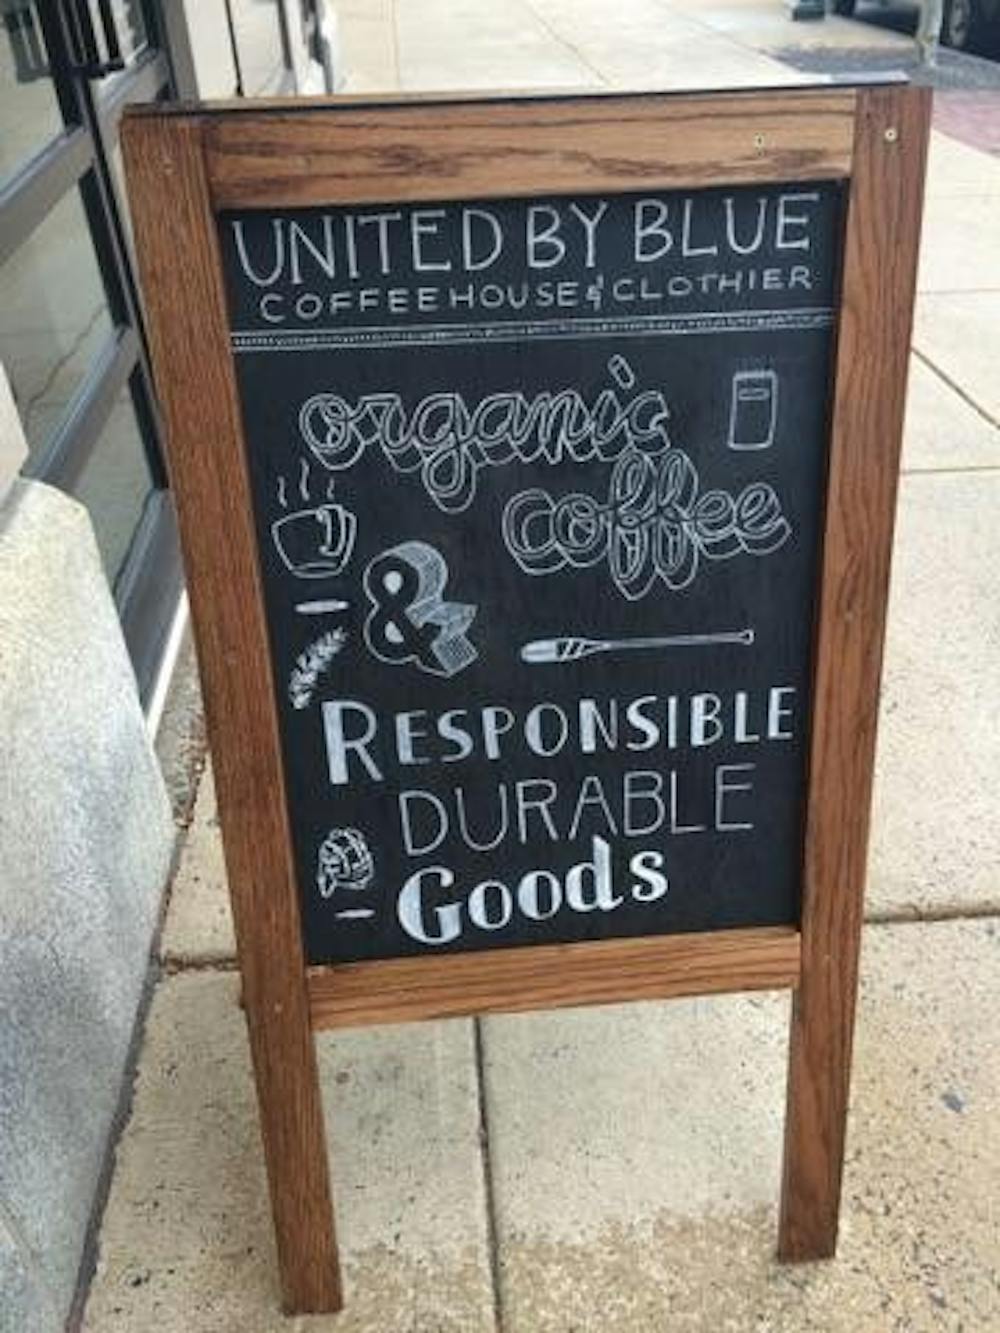 UNITED BY BLUE
COFFEEHOUSE & CLOTHIER
organic
coffee
&
RESPONSIBLE
DURABLE
Goods